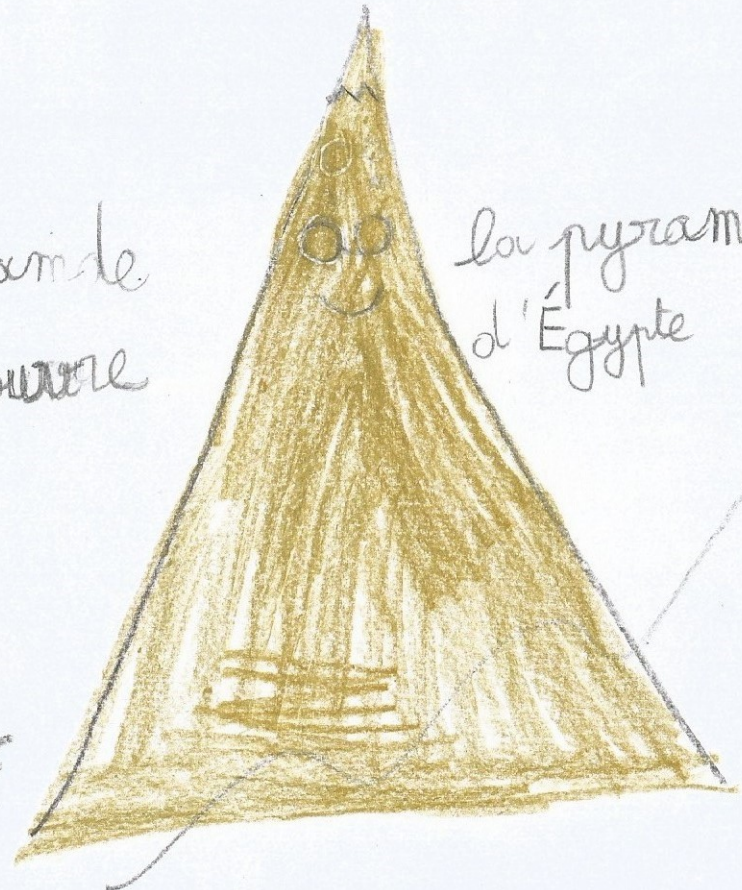 amde
ouvre
la pyram
d'Égypte